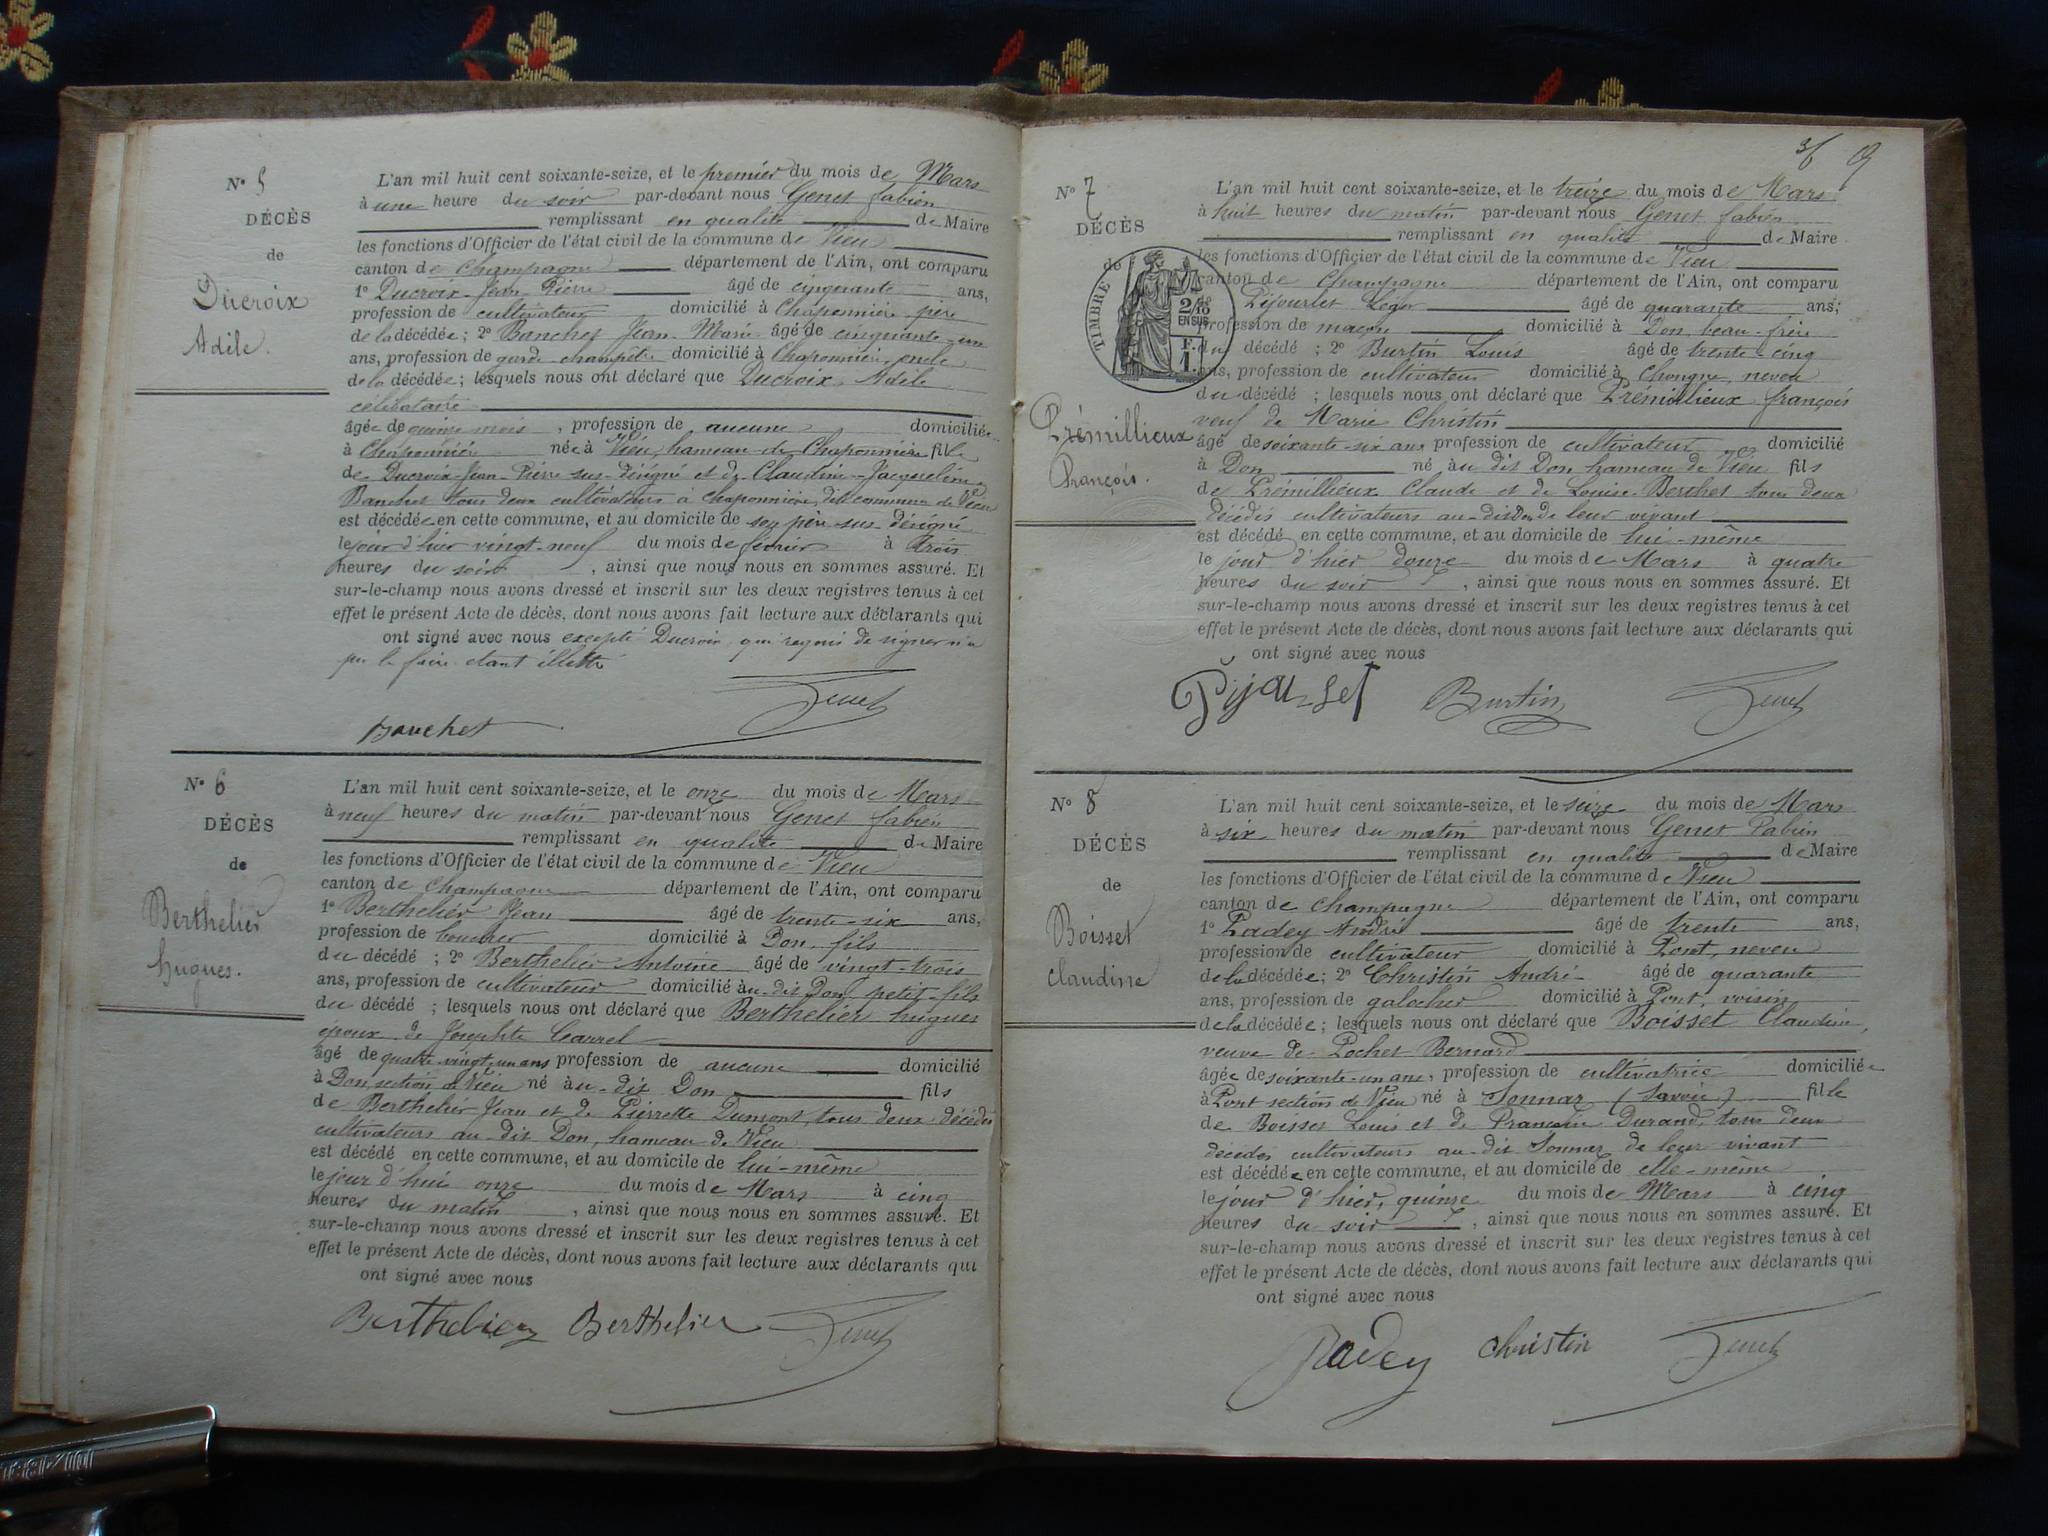 N° 5
DÉCÈS
de
Ducroix
Adèle.
L'an mil huit cent soixante-seize, et le premier du mois de Mars
à une heure du soir par-devant nous Genet fabien
remplissant en qualité de Maire
les fonctions d'Officier de l'état civil de la commune de Vieu
canton de Champagne département de l'Ain, ont comparu
1° Ducroix Jean Pierre âgé de cinquante ans,
profession de cultivateur domicilié à Chaponnière père
de la décédée; 2° Banchet Jean Marie âgé de cinquante-un
ans, profession de garde champêtre domicilié à Chaponnière, oncle
de la décédée; lesquels nous ont déclaré que Ducroix Adèle
célibataire
âgée de quinze mois, profession de aucune domiciliée
à Chaponnière née à Vieu, hameau de Chaponnière fille
de Ducroix Jean Pierre sus-désigné et de Claudine-Jacqueline
Banchet tous deux cultivateurs à Chaponnière, dite commune de Vieu
est décédée en cette commune, et au domicile de son père sus-désigné
le jour d'hier vingt-neuf du mois de février à trois
heures du soir, ainsi que nous nous en sommes assuré. Et
sur-le-champ nous avons dressé et inscrit sur les deux registres tenus à cet
effet le présent Acte de décès, dont nous avons fait lecture aux déclarants qui
ont signé avec nous excepté Ducroix qui requis de signer n'a
pu le faire étant illettré
Banchet Genet
N° 6
DÉCÈS
de
Berthelier
hugues.
L'an mil huit cent soixante-seize, et le onze du mois de Mars
à neuf heures du matin par-devant nous Genet fabien
remplissant en qualité de Maire
les fonctions d'Officier de l'état civil de la commune de Vieu
canton de Champagne département de l'Ain, ont comparu
1° Berthelier Jean âgé de trente-six ans,
profession de boucher domicilié à Don, fils
du décédé ; 2° Berthelier Antoine âgé de vingt-trois
ans, profession de cultivateur domicilié au-dit Don, petit-fils
du décédé ; lesquels nous ont déclaré que Berthelier hugues
époux de Josephte Carrel
âgé de quatre-vingt-un ans profession de aucune domicilié
à Don, section de Vieu né au-dit Don fils
de Berthelier Jean et de Pierrette Dumont, tous deux décédés
cultivateurs au-dit Don, hameau de Vieu
est décédé en cette commune, et au domicile de lui-même
le jour d'hui onze du mois de Mars à cinq
heures du matin, ainsi que nous nous en sommes assuré. Et
sur-le-champ nous avons dressé et inscrit sur les deux registres tenus à cet
effet le présent Acte de décès, dont nous avons fait lecture aux déclarants qui
ont signé avec nous
Berthelier Berthelier Genet
36 9
N° 7
DÉCÈS
de
TIMBRE
2/10
EN SUS
F.
1.
Prémillieux
François.
L'an mil huit cent soixante-seize, et le treize du mois de Mars
à huit heures du matin par-devant nous Genet fabien
remplissant en qualité de Maire
les fonctions d'Officier de l'état civil de la commune de Vieu
canton de Champagne département de l'Ain, ont comparu
Léger âgé de quarante ans;
profession de maçon domicilié à Don, beau-frère
du décédé ; 2° Burtin Louis âgé de trente-cinq
ans, profession de cultivateur domicilié à Chongne, neveu
du décédé ; lesquels nous ont déclaré que Prémillieux françois
veuf de Marie Christin
âgé de soixante-six ans profession de cultivateur domicilié
à Don né au dit Don hameau de Vieu fils
de Prémillieux Claude et de Louise Berthet tous deux
décédés cultivateurs au-dit Don de leur vivant
est décédé en cette commune, et au domicile de lui-même
le jour d'hier douze du mois de Mars à quatre
heures du soir, ainsi que nous nous en sommes assuré. Et
sur-le-champ nous avons dressé et inscrit sur les deux registres tenus à cet
effet le présent Acte de décès, dont nous avons fait lecture aux déclarants qui
ont signé avec nous
Burtin Genet
N° 8
DÉCÈS
de
Boisset
Claudine
L'an mil huit cent soixante-seize, et le seize du mois de Mars
à six heures du matin par-devant nous Genet Fabien
remplissant en qualité de Maire
les fonctions d'Officier de l'état civil de la commune de Vieu
canton de Champagne département de l'Ain, ont comparu
1° Padey André âgé de trente ans,
profession de cultivateur domicilié à Pont, neveu
de la décédée; 2° Christin André âgé de quarante
ans, profession de galocher domicilié à Pont, voisin
de la décédée; lesquels nous ont déclaré que Boisset Claudine,
veuve de Pochet Bernard
âgée de soixante-un ans, profession de cultivatrice domiciliée
à Pont section de Vieu né à Sonnaz (Savoie) fille
de Boisset Louis et de Françoise Durand, tous deux
décédés cultivateurs au-dit Sonnaz de leur vivant
est décédée en cette commune, et au domicile de elle-même
le jour d'hier, quinze du mois de Mars à cinq
heures du soir, ainsi que nous nous en sommes assuré. Et
sur-le-champ nous avons dressé et inscrit sur les deux registres tenus à cet
effet le présent Acte de décès, dont nous avons fait lecture aux déclarants qui
ont signé avec nous
Padey Christin Genet